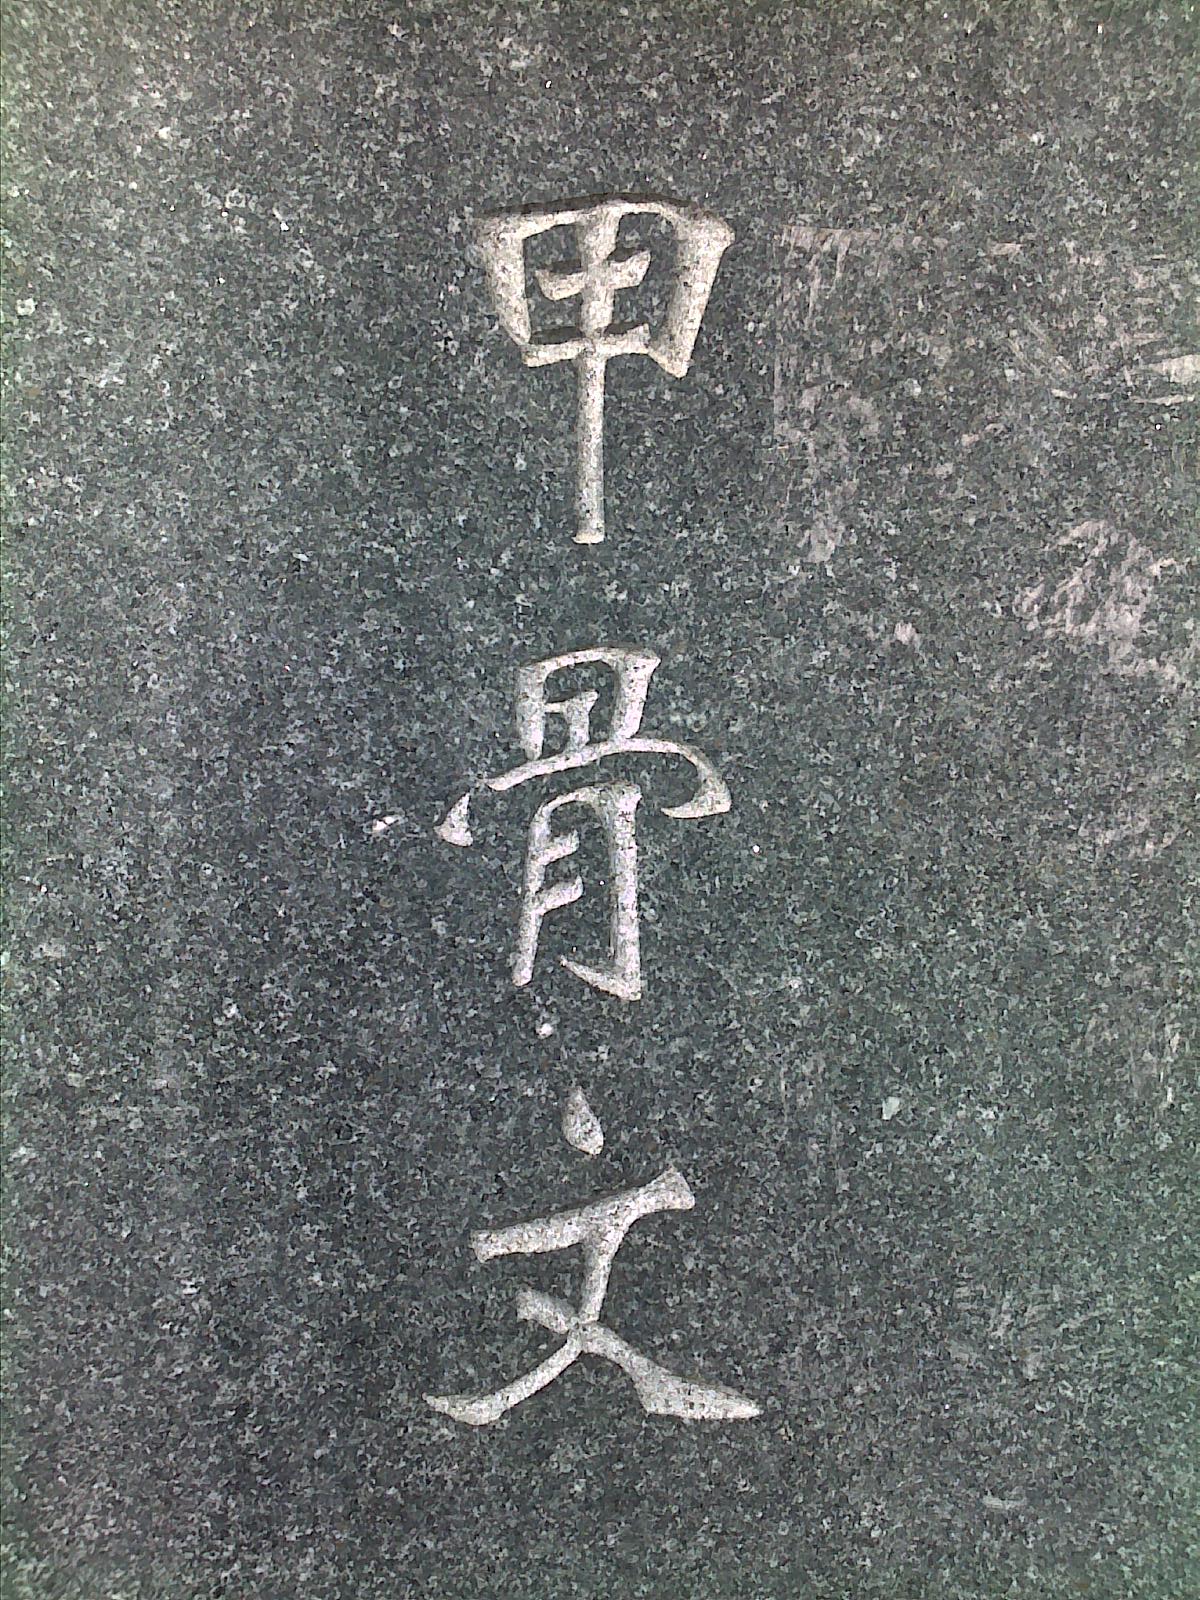 甲骨文